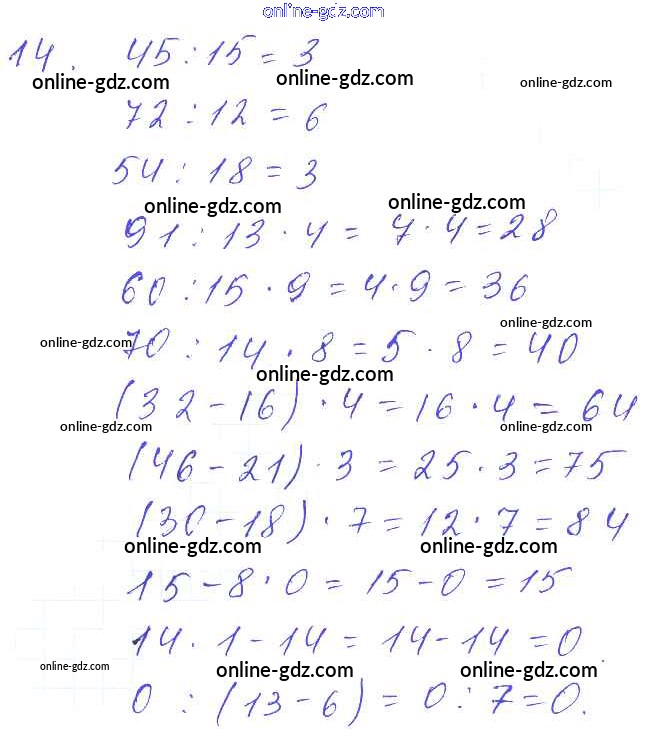 online-gdz.com
14. 45 : 15 = 3
online-gdz.com online-gdz.com online-gdz.com
72 : 12 = 6
54 : 18 = 3
online-gdz.com online-gdz.com
91 : 13 · 4 = 7 · 4 = 28
60 : 15 · 9 = 4 · 9 = 36
online-gdz.com
online-gdz.com
70 : 14 · 8 = 5 · 8 = 40
online-gdz.com
(32 - 16) · 4 = 16 · 4 = 64
online-gdz.com online-gdz.com
(46 - 21) · 3 = 25 · 3 = 75
(30 - 18) · 7 = 12 · 7 = 84
online-gdz.com online-gdz.com
15 - 8 · 0 = 15 - 0 = 15
14 · 1 - 14 = 14 - 14 = 0.
online-gdz.com online-gdz.com online-gdz.com
0 : (13 - 6) = 0 : 7 = 0.